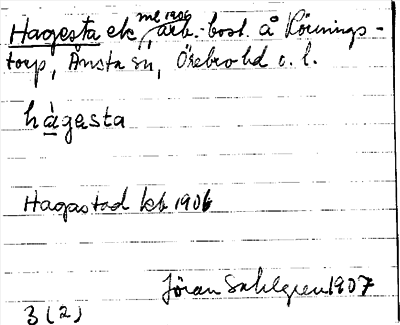 Hagesta ek ml 1906, arb.-bost. å Körnings-
torp, Ånsta sn, Örebro hd o. l.
hàgesta
Hagastad kb 1906
Jöran Sahlgren 1907
3 (2)